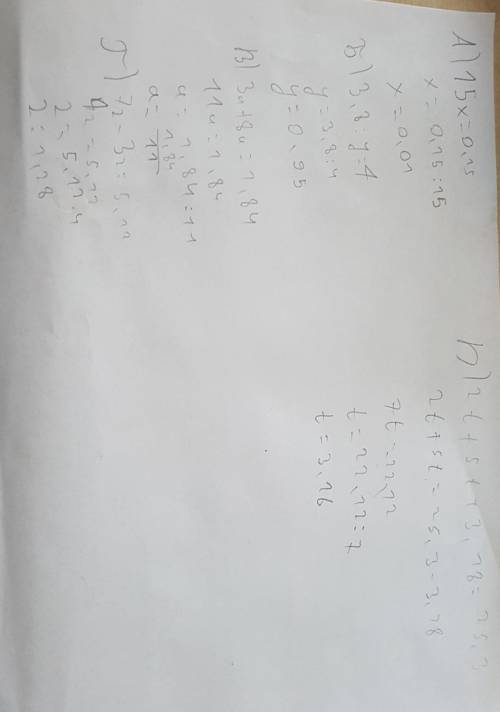 1) 15x=0,15
x = 0,15:15
x = 0,01
Б) 3,8 : y = 4
y = 3,8:4
y = 0,95
В) 3u+8u = 1,84
11u = 1,84
u = 1,84:11
u = 1,84/11
Г) 7z - 3z = 5,12
4z = 5,12
z = 5,12:4
z = 1,28
D) 2t + 5t + 3,18 = 25,3
2t + 5t = 25,3-3,18
7t = 22,12
t = 22,12:7
t = 3,16